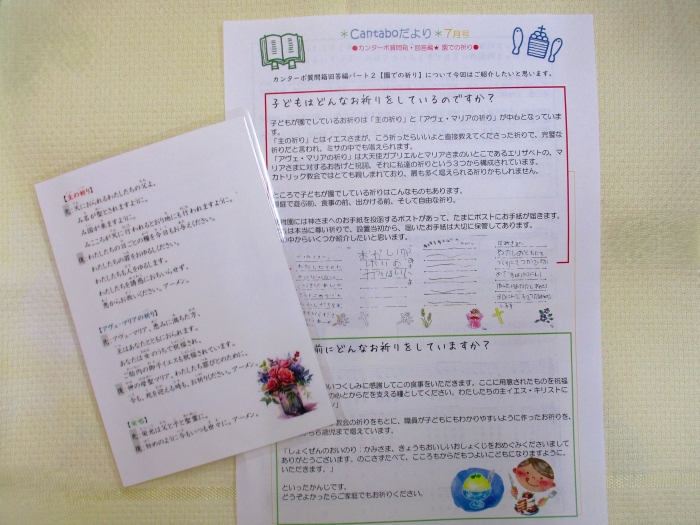 ＊Cantaboだより＊７月号
●カンターボ質問箱・回答編★ 園での祈り●
カンターボ質問箱回答編パート２【園での祈り】について今回はご紹介したいと思います。
子どもはどんなお祈りをしているのですか？
子どもが園でしているお祈りは「主の祈り」と「アヴェ・マリアの祈り」が中心となっています。
「主の祈り」とはイエスさまが、こう祈ったらいいよと直接教えてくださった祈りで、完璧な
祈りだと言われ、ミサの中でも唱えられます。
「アヴェ・マリアの祈り」は大天使ガブリエルとマリアさまのいとこであるエリザベトの、マ
リアさまに対するお告げと祝詞、それに私達の祈りという３つから構成されています。
カトリック教会ではとても親しまれており、最も多く唱えられる祈りかもしれません。
ところで子どもが園でしている祈りはこんなものもあります。
庭で遊ぶ前、食事の前、出かける前、そして自由な祈り。
園には神さまへのお手紙を投函するポストがあって、たまにポストにお手紙が届きます。
は本当に尊い祈りで、設置当初から、届いたお手紙は大切に保管してあります。
の中からいくつか紹介したいと思います。
前にどんなお祈りをしていますか？
いつくしみに感謝してこの食事をいただきます。ここに用意されたものを祝福
のこころとからだを支える糧としてください。わたしたちの主イエス・キリストに
教会の祈りをもとに、職員が子どもにもわかりやすいように作ったお祈りを、
から歳児まで唱えています。
「しょくぜんのおいのり：かみさま、きょうもおいしいおしょくじをおめぐみくださいまして
ありがとうございます。のこさずたべて、こころもからだもつよいこどもになりますように。
いただきます。」
といったかんじです。
どうぞよかったらご家庭でもお祈りください。
【主の祈り】
天におられるわたしたちの父よ、
み名が聖とされますように。
み国が来ますように。
みこころが天に行われるとおり地にも行われますように。
わたしたちの日ごとの糧を今日もお与えください。
わたしたちの罪をおゆるしください。
わたしたちも人をゆるします。
わたしたちを誘惑におちいらせず、
悪からお救いください。アーメン。
【アヴェ・マリアの祈り】
アヴェ・マリア、恵みに満ちた方、
主はあなたとともにおられます。
あなたは女のうちで祝福され、
ご胎内の御子イエスも祝福されています。
神の母聖マリア、わたしたち罪びとのために、
今も、死を迎える時も、お祈りください。アーメン。
【栄唱】
栄光は父と子と聖霊に。
初めのように今もいつも世々に。アーメン。